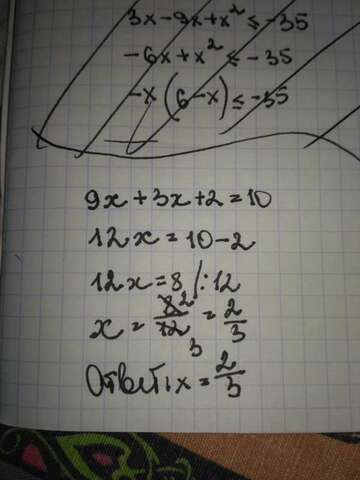 3x-9x+x² ≤ -35
-6x+x² ≤ -35
-x(6-x) ≤ -35
9x+3x+2=10
12x=10-2
12x=8 /:12
x = 8²/12₃ = 2/3
Ответ: x = 2/3